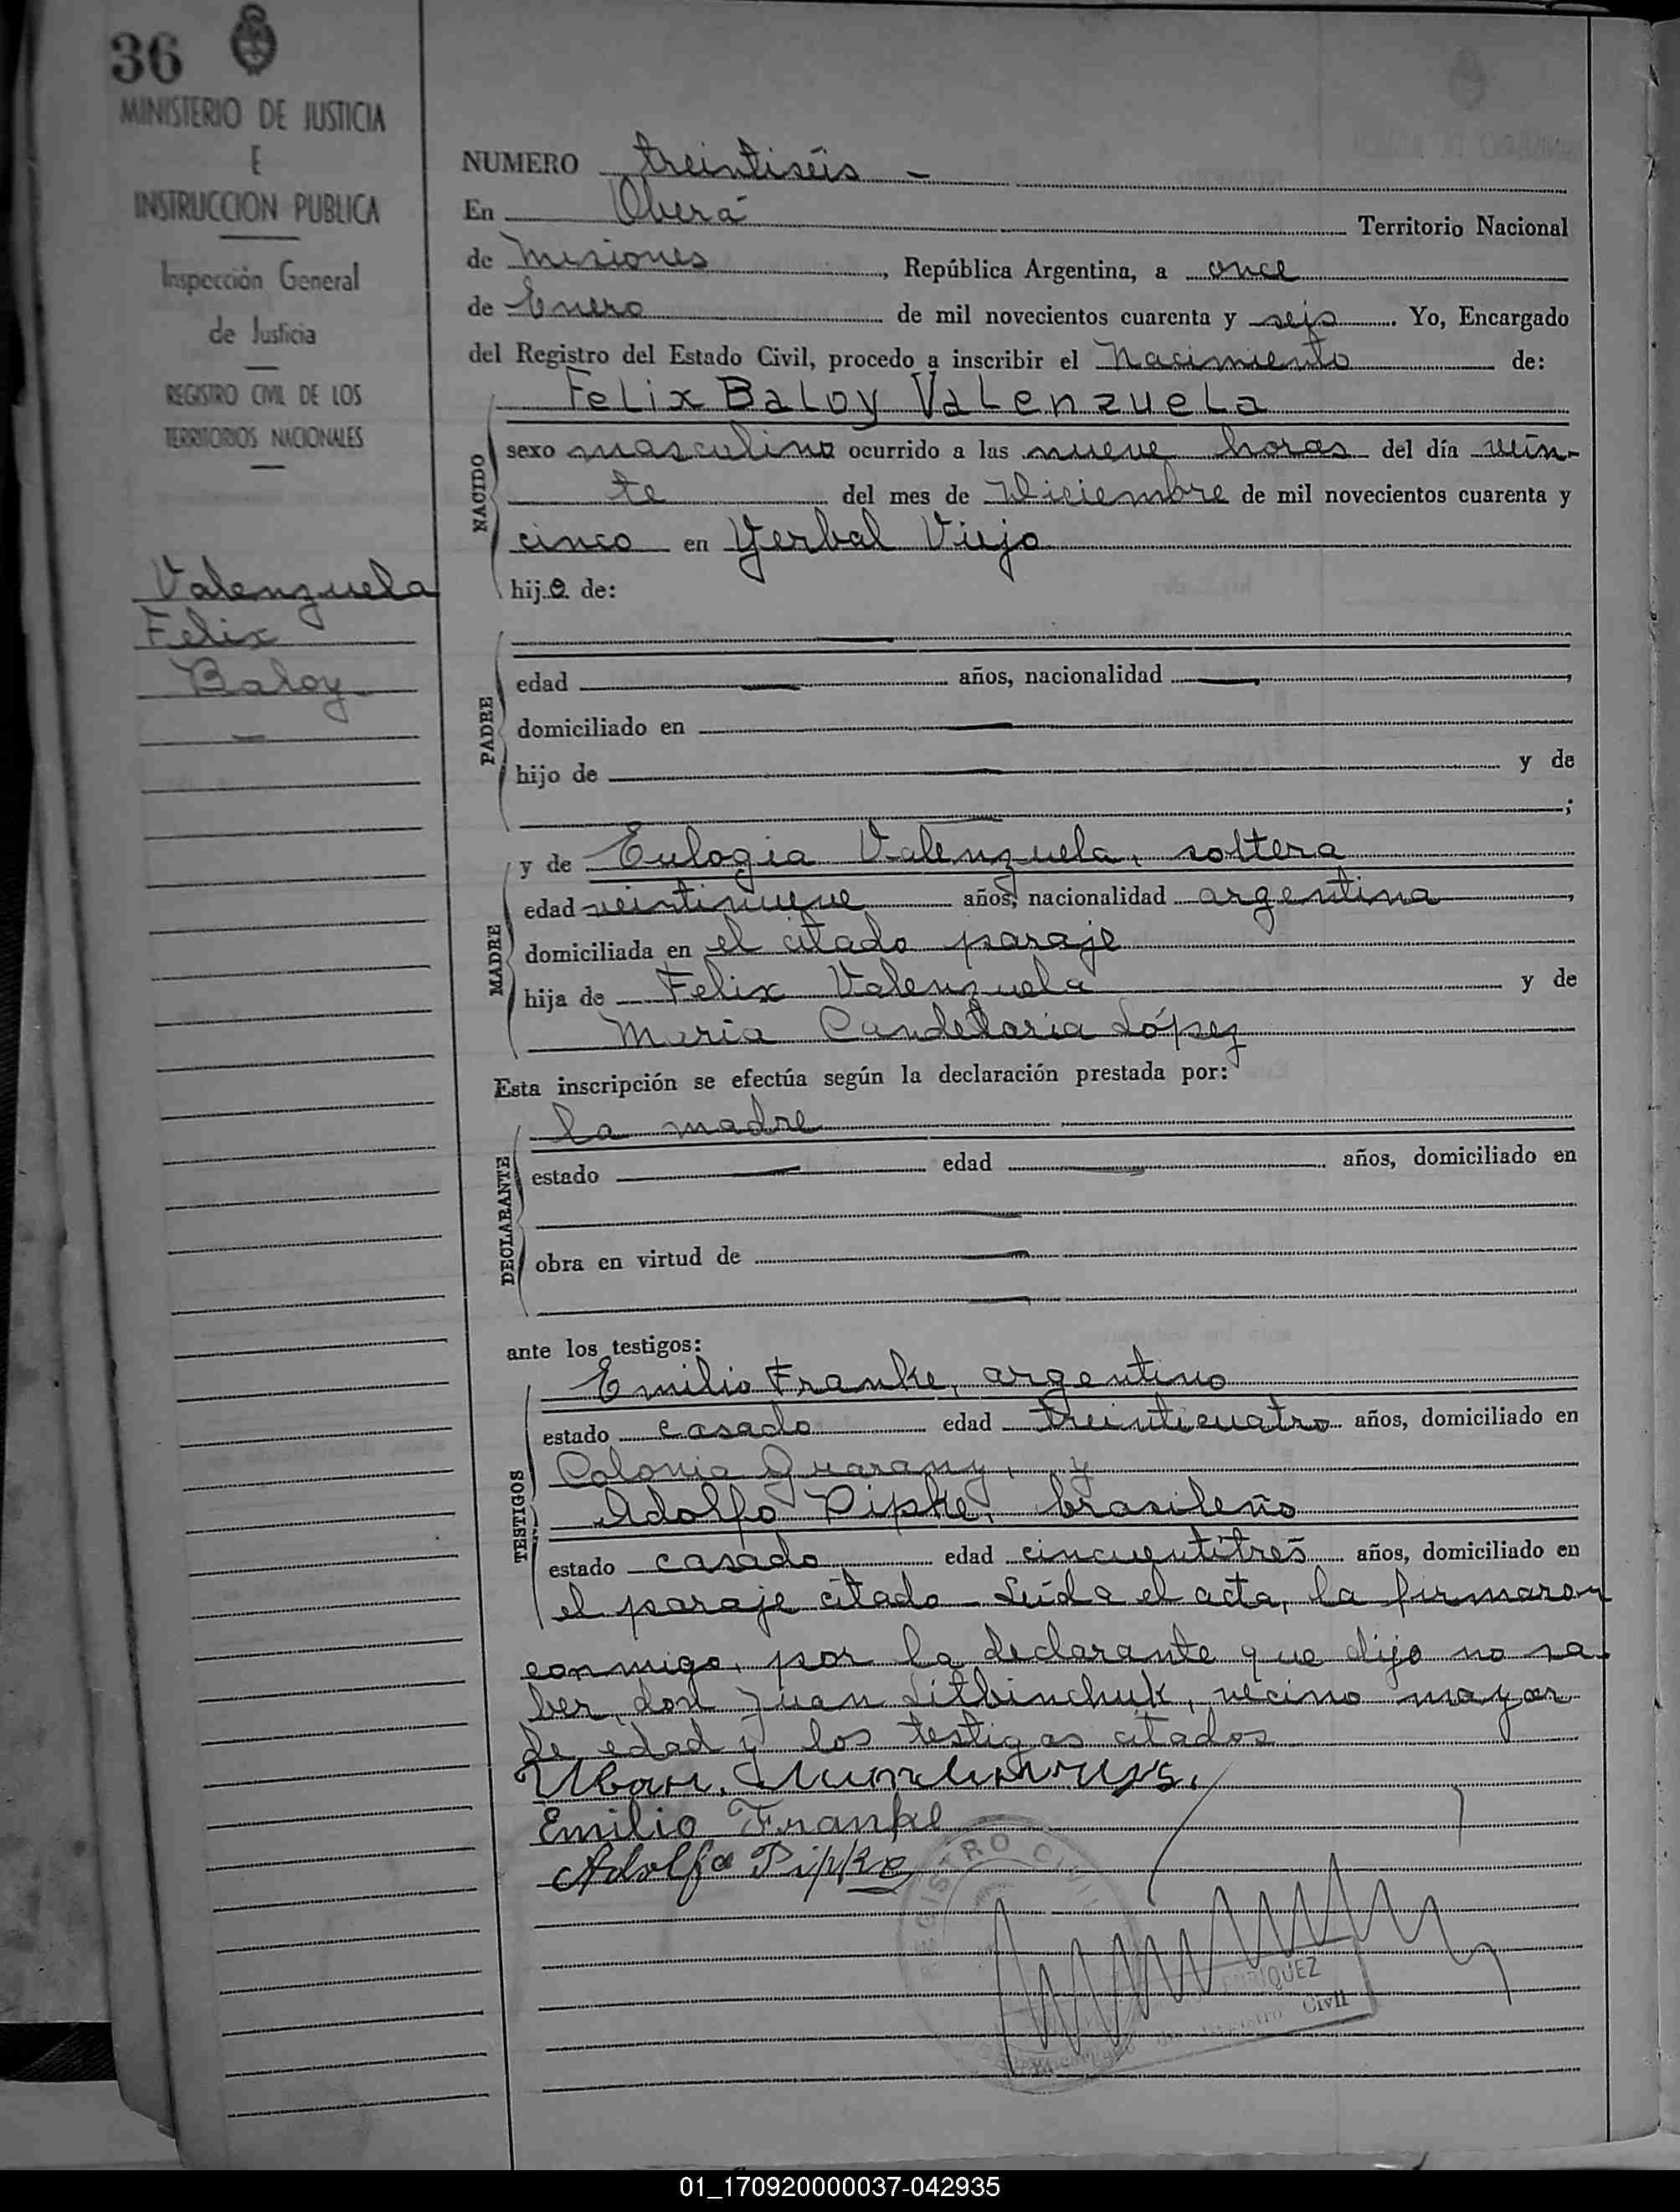 36
MINISTERIO DE JUSTICIA
E
INSTRUCCION PUBLICA
Inspección General
de Justicia
REGISTRO CIVIL DE LOS
TERRITORIOS NACIONALES
Valenzuela
Felix
Baloy
NUMERO treintiséis -
En Oberá Territorio Nacional
de Misiones, República Argentina, a once
de Enero de mil novecientos cuarenta y seis. Yo, Encargado
del Registro del Estado Civil, procedo a inscribir el Nacimiento de:
Felix Baloy Valenzuela
NACIDO
sexo masculino ocurrido a las nueve horas del día vein-
te del mes de Diciembre de mil novecientos cuarenta y
cinco en Yerbal Viejo
hijo de:
PADRE
edad años, nacionalidad ,
domiciliado en
hijo de y de
;
MADRE
y de Eulogia Valenzuela, soltera
edad veintinueve años, nacionalidad argentina,
domiciliada en el citado paraje
hija de Felix Valenzuela y de
Maria Candelaria López
Esta inscripción se efectúa según la declaración prestada por:
DECLARANTE
la madre
estado edad años, domiciliado en
obra en virtud de
ante los testigos:
TESTIGOS
Emilio Franke, argentino
estado casado edad treinticuatro años, domiciliado en
Colonia Guarany, y
Adolfo Pipke, brasileño
estado casado edad cincuentitrés años, domiciliado en
el paraje citado - Leída el acta, la firmaron
conmigo, por la declarante que dijo no sa-
ber, don Juan Litbinchuk, vecino mayor
de edad y los testigos citados
Emilio Franke
Adolfo Pipke
REGISTRO CIVIL
ENRIQUEZ
Registro Civil
01_170920000037-042935